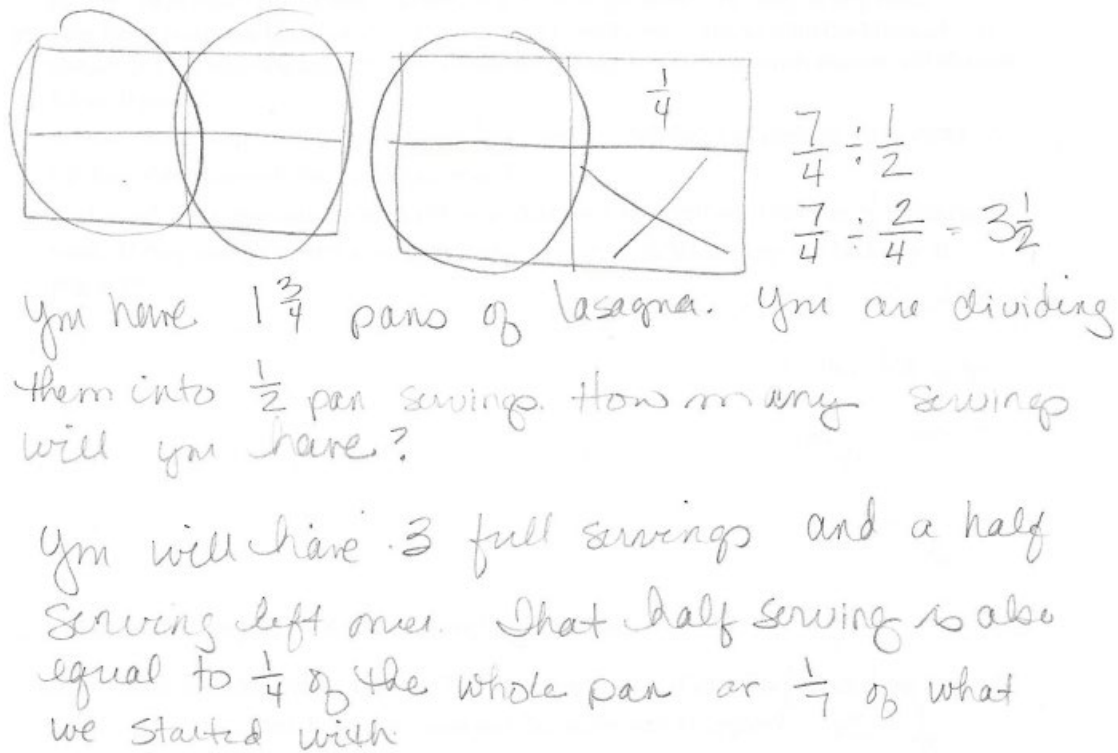 1/4
7/4 ÷ 1/2
7/4 ÷ 2/4 = 3 1/2
You have 1 3/4 pans of lasagna. You are dividing
them into 1/2 pan servings. How many servings
will you have?
You will have 3 full servings and a half
serving left over. That half serving is also
equal to 1/4 of the whole pan or 1/7 of what
we started with